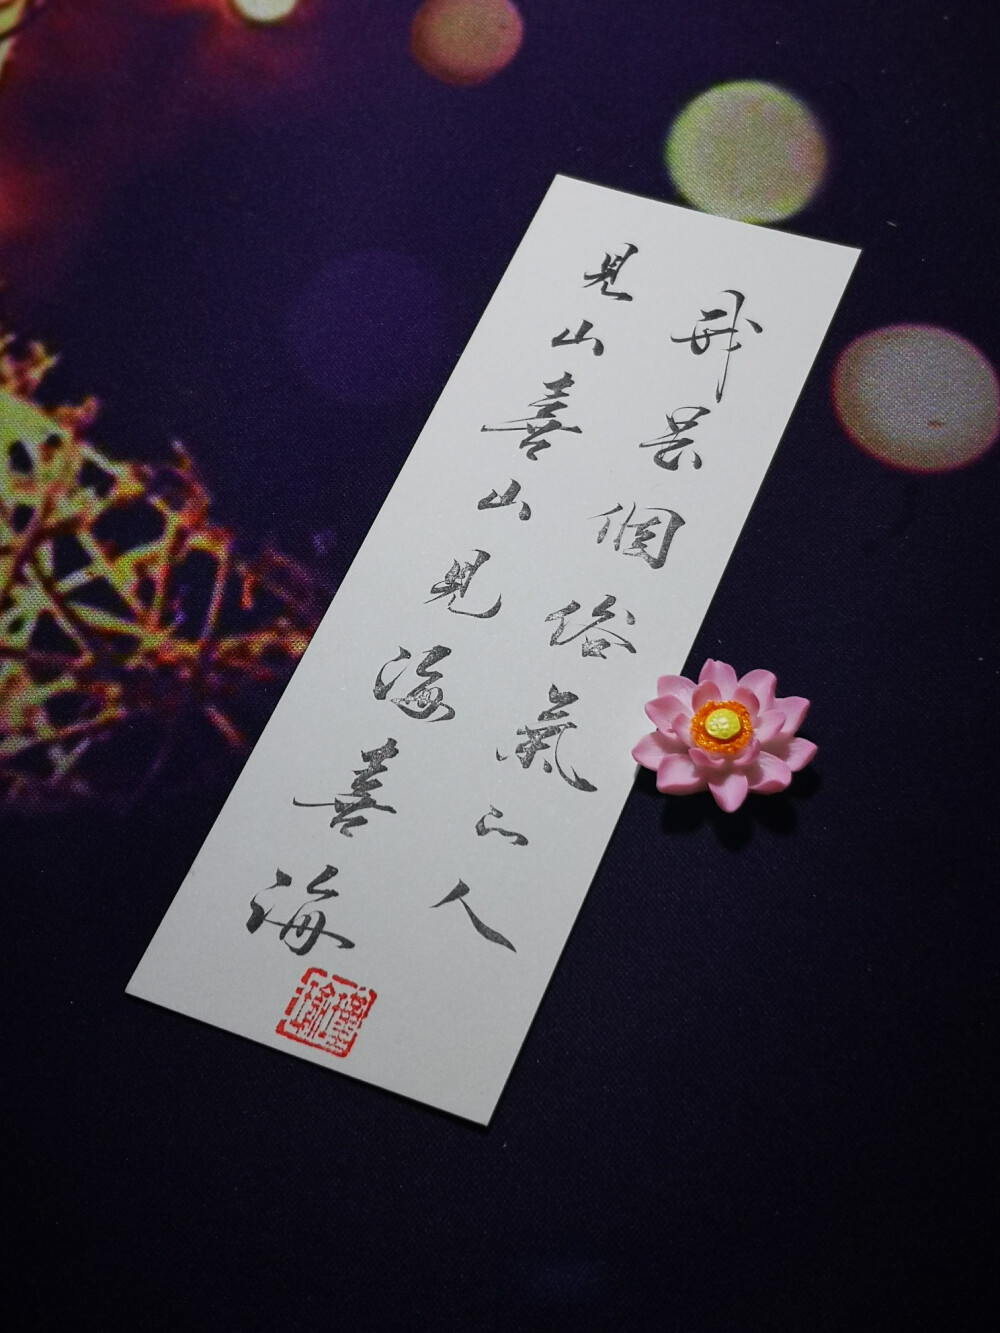 我是個俗氣的人
見山喜山見海喜海